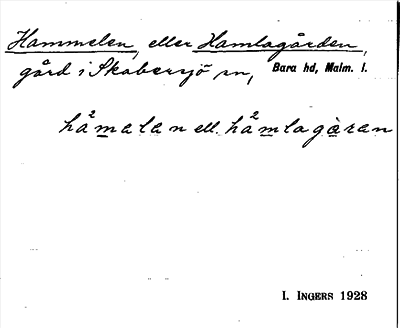 Hammelen, eller Hamlagården,
gård i Skabersjö sn, Bara hd, Malm. l.
hå²malan ell. hå²mlagàran
I. INGERS 1928